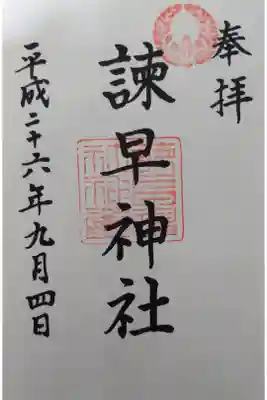 奉拝
諫早神社
平成二十六年九月四日